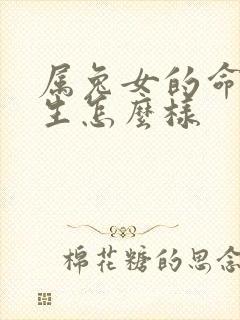 属兔女的命
生怎麼樣
棉花糖的思念